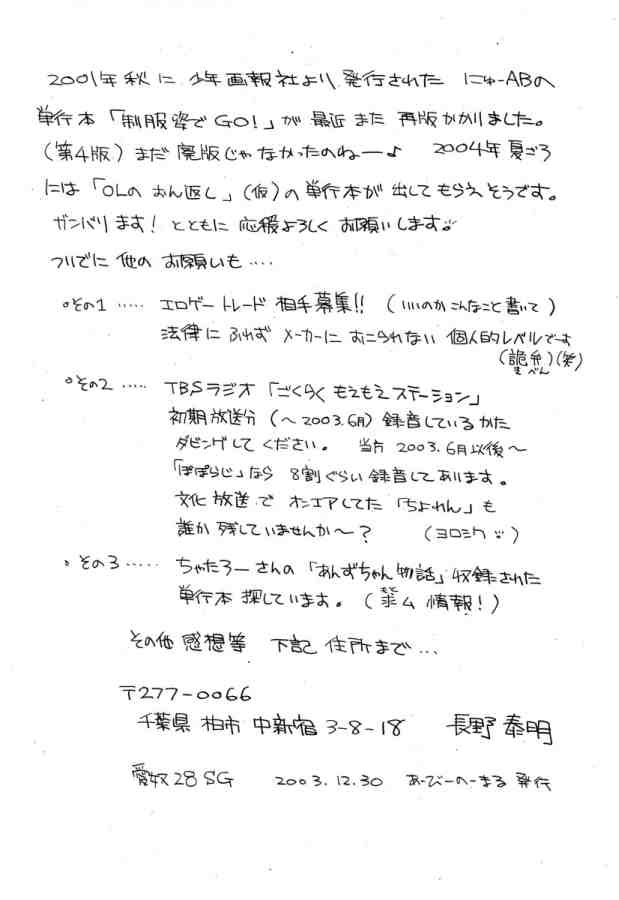 2001年秋に 少年画報社より 発行された にゅーABの
単行本「制服姿でGO!」が 最近 また 再版かかりました。
(第4版) まだ 廃版じゃなかったのねー♪ 2004年 夏ごろ
には「OLの おん返し」(仮)の 単行本が 出して もらえそうです。
ガンバリます! とともに 応援よろしく お願いします
ついでに 他の お願いも ‥‥
°その1 ‥‥‥ エロゲー トレード 相手募集!! (いいのか こんなこと 書いて)
法律に ふれず メーカーに おこられない 個人的レベルです
(詭弁)(笑)
きべん
°その2 ‥‥‥ TBSラジオ「ごくらく もえもえ ステーション」
初期放送分 (〜2003.6月) 録音している かた
ダビングして ください。 当方 2003.6月以後〜
「ぽぽらじ」なら 8割ぐらい 録音して あります。
文化放送で オンエアしてた 「ちよれん」も
誰か 残していませんか〜? (ヨロシク)
°その3 ‥‥‥ ちゃたろーさんの「あんずちゃん物語」収録された
単行本 探しています。 (情報!)
その他 感想等 下記 住所まで…
〒277-0066
千葉県 柏市 中新宿 3-8-18 長野 泰明
愛奴28SG 2003.12.30 あーびーのーまる 発行